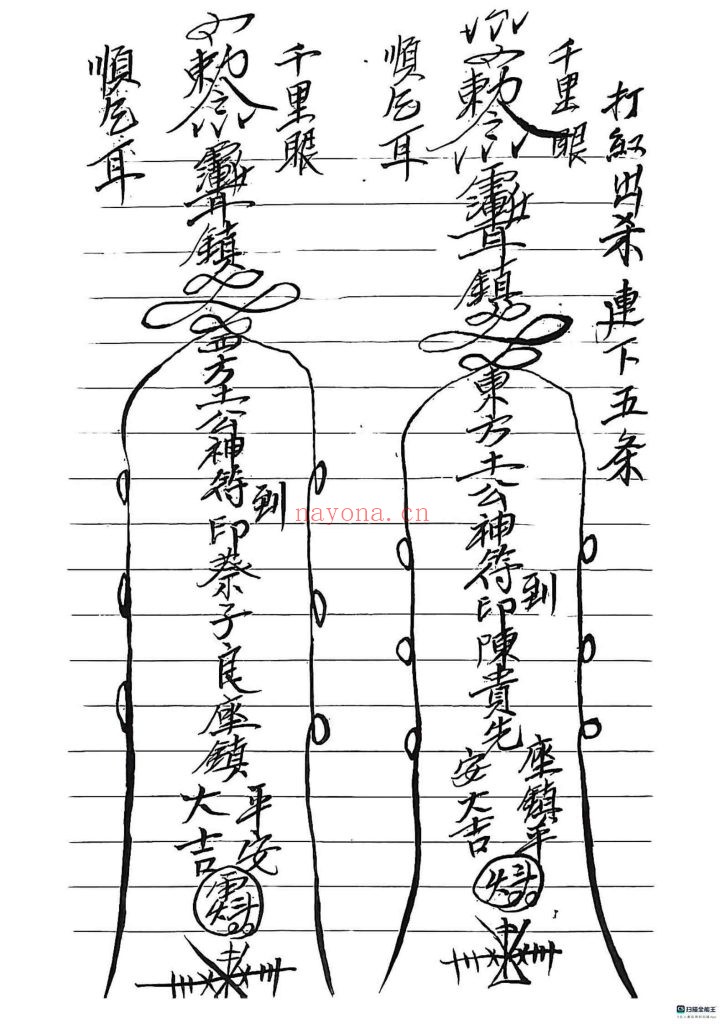 打紅出杀連下五条
千里眼
勅令
順乞耳
鎮
東方土公神符到
印陳貴先
座鎮平
安大吉
千里眼
勅令
順乞耳
鎮
西方土公神符到
印蔡子良座鎮
平安
大吉
nayona.cn
扫描全能王